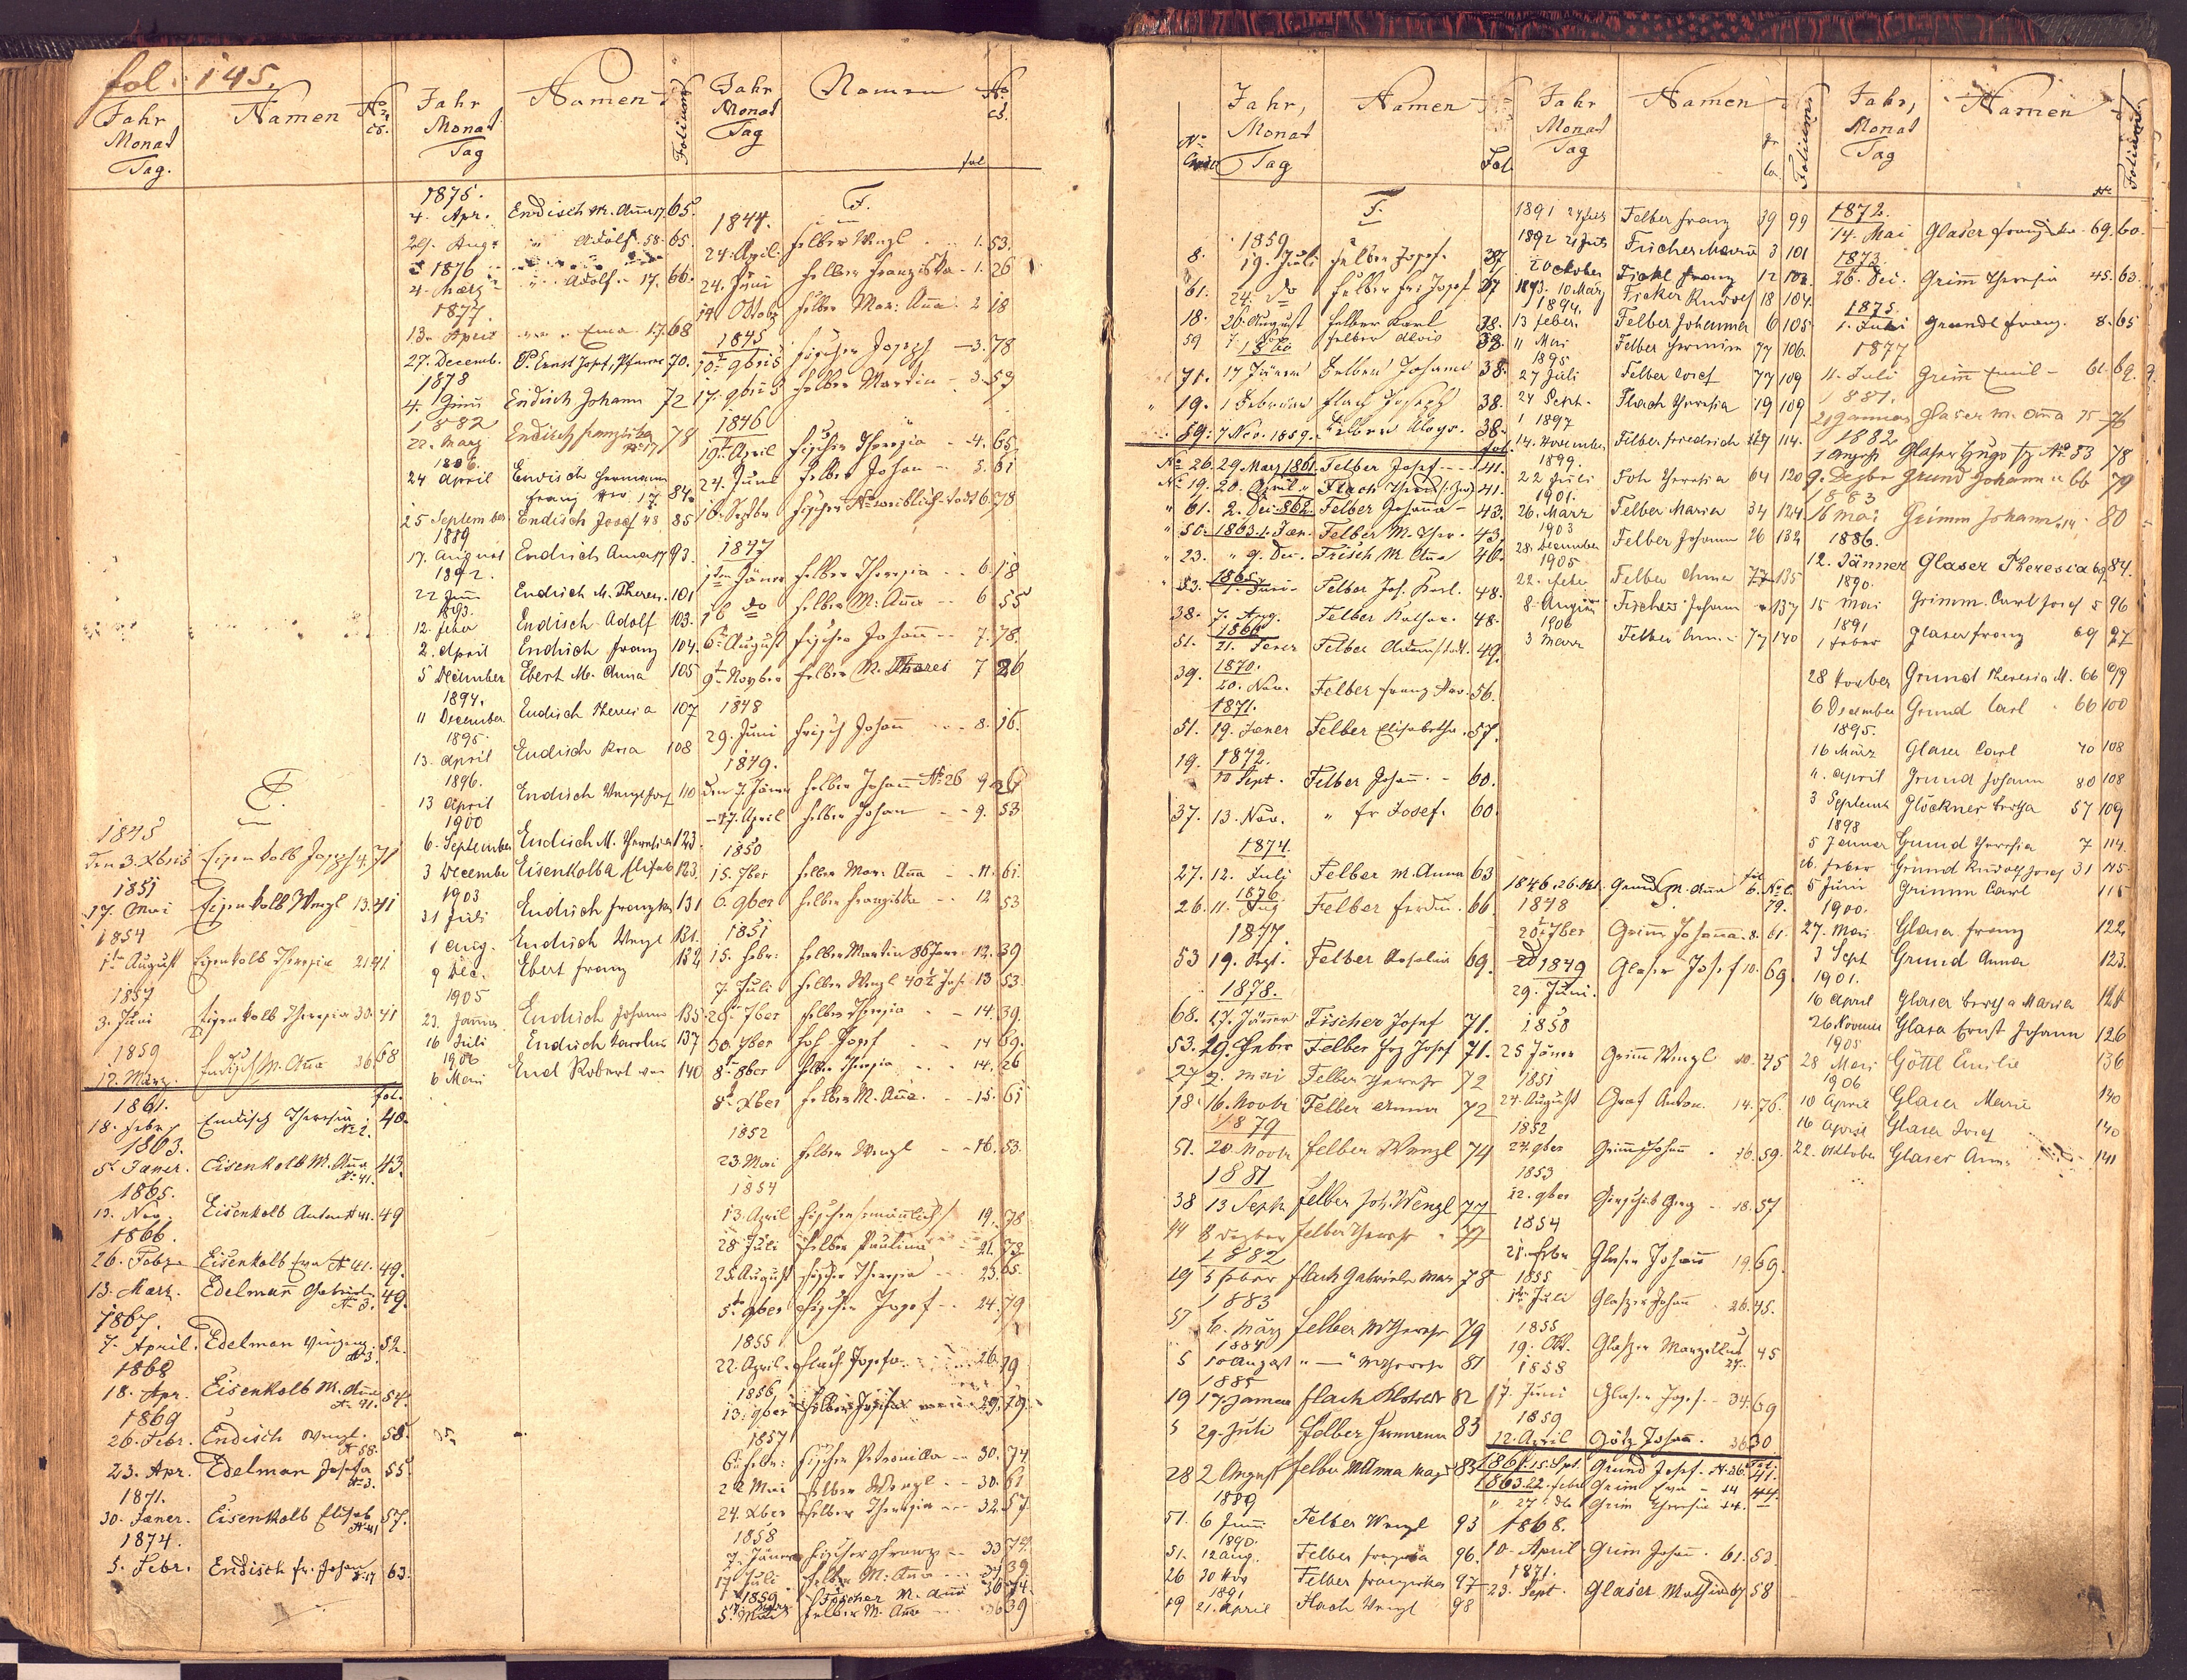 fol. 145.
Jahr Monat Tag. Namen No cs.
E.
1845
den 3. Xbris Eisenkolb Joseph 4. 71
1851
17. Mai Eisenkolb Wenzl 13. 41
1854
1ten August Eisenkolb Theresia 21 41
1857
3. Juni Eisenkolb Theresia 30. 41
1859
12. März. Endisch M. Aña 36 68
fol.
1861.
18. Febr. Endisch Theresia No 2. 40.
1863.
5t Janer. Eisenkolb M. Aña No 41. 43.
1865.
13. Nov. Eisenkolb Anton No 41. 49
1866.
26. Febr. Eisenkolb Eva No 41. 49.
13. Marz. Edelman No 3. 49.
1867.
7. April. Edelman Vinzenz No 3. 52.
1868
18. Apr. Eisenkolb M. Aña No 41. 54.
1869
26. Febr. Endisch Wenzl. No 58. 58.
23. Apr. Edelman Josefa No 3. 55.
1871.
30. Janer. Eisenkolb Elisab No 41 57.
1874.
5. Febr. Endisch fr. Johan No 17 63.
Jahr Monat Tag Namen Folium
1875.
4. Apr. Endisch M. Aña 17. 65.
Aug. " Adolf. 58. 65.
1876
4. März " Adolf. 17. 66.
1877.
13. April " Ema 17. 68
27. Decemb. P. Ernst Josef, Pfarrer 70.
1878
4. Juni Endisch Johann 72
1882
22. März Endisch Franziska No 17 78
1886.
24 April Endisch Hermann Franz No. 17. 84.
25 September Endisch Josef 48 85
1889
17. August Endisch Anna 17 93.
1892.
22 Juni Endisch M. Theres. 101
1893.
12. Feber Endisch Adolf 103.
2. April Endisch Franz 104.
5 December Ebert M. Anna 105
1894.
11 December Endisch Theresia 107
1895.
13. April Endisch Rosa 108
1896.
13 April Endisch Wenzl Josef 110
1900
6. September Endisch M. Theresia 123.
3 December Eisenkolb Elisab 123.
1903
31 Juli Endisch Franziska 131
1 Aug. Endisch Wenzl 131.
9 Dec. Ebert Franz 132
1905
23. Janner Endisch Johann 135
16 Juli Endisch Karolina 137
1906
6 März End Robert 140
Jahr Monat Tag Namen No cs.
fol
F.
1844.
24. April. Felber Wenzl 1. 53.
24. Juni Felber Franziska 1. 26
14 Oktob Felber Mar. Aña 2 18
1845
10t 9bris Fischer Joseph 3. 78
17. 9bris Felber Martin 3. 59
1846
19t April Fischer Theresia 4. 65.
24. Juni Felber Johan 5. 61
10. Septbr Fischer weiblich todt 6. 78
1847
1ten Jäner Felber Theresia 6. 18
16 do Felber M. Aña 6 55
6t August Fischer Johañ 7. 78.
9t Novber Felber M. Theres 7 26
1848
29. Juni Frisch Johañ 8. 16.
1849.
den 7. Jäner Felber Johañ No 26 9. 26
17. April Felber Johan 9. 53
1850
15. 7ber Felber Mar. Aña 11. 61.
6. 9ber Felber Franziska 12 53
1851
15. Febr. Felber Martin 86 Jare 12. 39
7. Juli Felber Wenzl 40½ Jahr 13 53.
29t 7ber Felber Theresia 14. 39.
30. 7ber Foh Josef 14 69.
8t 8ber Felber Theresia 14. 26
8t Xber Felber M. Aña. 15. 61
1852
23. Mai Felber Wenzl 16. 53.
1854
13. April Fischer /mänlich/ 19. 78
28 Juli Felber Paulina 21. 73
25 August Fischer Theresia 23. 65.
5t 9ber Fischer Josef 24. 79
1855
22. April Flach Josefa 26. 19
1856
13. 9ber Felber Josefa 29. 79.
1857
6t Febr. Fischer Petronilla 30. 74
22 Mai Felber Wenzl 30. 61
24. Xber Felber Theresia 32. 57
1858
7. Jäner Fischer Franz 33 74.
17 Juli Felber M. Aña 34 39
1859 Fischer M. Aña 36 74.
5. Felber M. Aña 36 39
No Jahr, Monat Tag Namen Fol.
F.
1859
8. 19. Juli Felber Josef. 37
61. 24. do Felber Frz Josef 37
18. 26. August Felber Karl 38.
59 Felber Alois 38.
1860
71. 17 Jänner Felber Johann 38.
" 19. 1 Februar Flach Joseph 38.
59. 7 Nov. 1859. Felber Aloys. 38.
fol.
No 26. 29. Marz 1861. Felber Josef 41.
No 19. 20. April " Flach 41.
" 61. 2. Dec. 862. Felber Johanna 43.
" 50. 1863. 1. Jan. Felber M. Ther. 43.
" 23. " 9. Dec. Frisch M. Aña 46.
1865.
" 53. Juni Felber Joh. Karl. 48.
38. 7. Aug. Felber Kathar. 48.
1866
51. 21. Jener Felber 49.
1870.
39. 20. Nov. Felber Franz Xav. 56.
1871.
51. 19. Janer Felber Elisabetha. 57.
1872.
19. 10 Sept. Felber Johañ. 60.
37. 13. Nov. " fr Josef. 60.
1874.
27. 12. Juli Felber M. Anna 63
1876.
26. 11. Aug Felber Ferdin. 66.
1877.
53 19. Sept. Felber Rosalia 69.
1878.
68. 27. Jäner Fischer Josef 71.
53. 29. Febr. Felber Frz Josef 71.
27 2. Mai Felber Theresie 72
18 16. Novbr Felber Anna 72
1879
51. 20. Novbr Felber Wenzl 74
1881
38 13 Septr Felber Joh. Wenzl 77
44 8 Dezber Felber Theresie 77
1882
19 5 Feber Flach Gabriele Mar 78
1883
57 6. März Felber M Theresie 79
1884
5 10 August " — " M Theresie 81
1885
19 17. Januar Flach 82
5 29. Juli Felber Hermann 83
28 2 August Felber M Anna 83
1889
51. 6 Juni Felber Wenzl 93
1890.
51. 12 Aug. Felber Franziska 96.
26 30 Nov Felber Franziska 97
1891
19 21. April Flach Wenzl 98
Jahr Monat Tag Namen Folium
1891 24 Juli Felber Franz 39 99
1892 21 Juli Fischer Maria 3 101
2 October Fickl Franz 12 102.
1893. 10 März Ficker Rudolf 18 104.
1894.
13 Feber. Felber Johanna 6 105
11 Mai Felber Hermine 77 106.
1895
27 Juli Felber Josef 77 109
24 Sept. Flach Theresia 19 109
1897
14. November Felber Friedrich 27 114.
1899.
22 Juli Foh Theresia 64 120
1901.
26. März Felber Maria 34 124
1903
28. December Felber Johann 26 132
1905
22. Feber Felber Anna 77 135
8. August Fischer Johann 137
1906
3 März Felber Anna 77 140
fol No C.
1846. 26. Okt. Grund M. Aña 6. 79.
1848
20t 7ber Grim Johanna. 8. 61.
1849
29. Juni. Glaser Josef 10. 69.
1850
25 Jäner Grim Wenzl 10. 45
1851
24. August Graf Anton. 14. 76.
1852
24. 9ber Grim Johañ 16. 59.
1853
12. 9ber 18. 57
1854
21. Glaser Johañ 19. 69.
1855
1ten Juli Glaser Johañ 26. 45.
1855
19. Okt. Glaser Marzellus 27. 45
1858
17. Juni Glaser Josef. 34. 69
1859
12. April Götz Johañ. 36 30.
Fol.
1861. 15. Spt. Grund Josef. No 36. 41.
1863. 22. Febr Grim Eva 14 44.
" 27t do Grim Theresia 14.
1868.
10. April Grim Johañ. 61. 53.
1871.
23. Sept. Glaser Mathias 69 58
Jahr, Monat Tag Namen No Folium
1872.
14. Mai Glaser Franziska 69. 60.
1873.
26. Dec. Grim Theresia 45. 63.
1875.
1. Juni Grundl Franz. 8. 65
1877
11. Juli Grim Emil 61. 69.
1881.
21 Januar Glaser M. Aña 75 76
1882
1 August Glaser Hugo Fz No 53 78
9. Dezbr Grund Johann 66 79
1883
16 Mai Grimm Johann 14 80
1886.
12. Jänner Glaser Theresia 69 84.
1890.
15 Mai Grimm Carl Josef 5 96
1891
1 Feber Glaser Franz 69 97
28 Novber Grund Theresia M. 66 99
6 December Grund Carl 66 100
1895.
16 März Glaser Carl 70 108
11. April Grund Johann 80 108
3 Septemb Glöckner Bertha 57 109
1898
5 Jänner Grund Theresia 7 114.
26. Feber Grund Rudolf Josef 31 115.
5 Juni Grimm Carl 115
1900.
27. Mai Glaser Franz 122
3 Sept Grund Anna 123.
1901.
16 April Glaser Bertha Maria 124
26. November Glaser Ernst Johann 126
1905
28 März Göttl Emilie 136
1906
10 April Glaser Marie 140
16 April Glaser Josef 140
22. October Glaser Anna 141